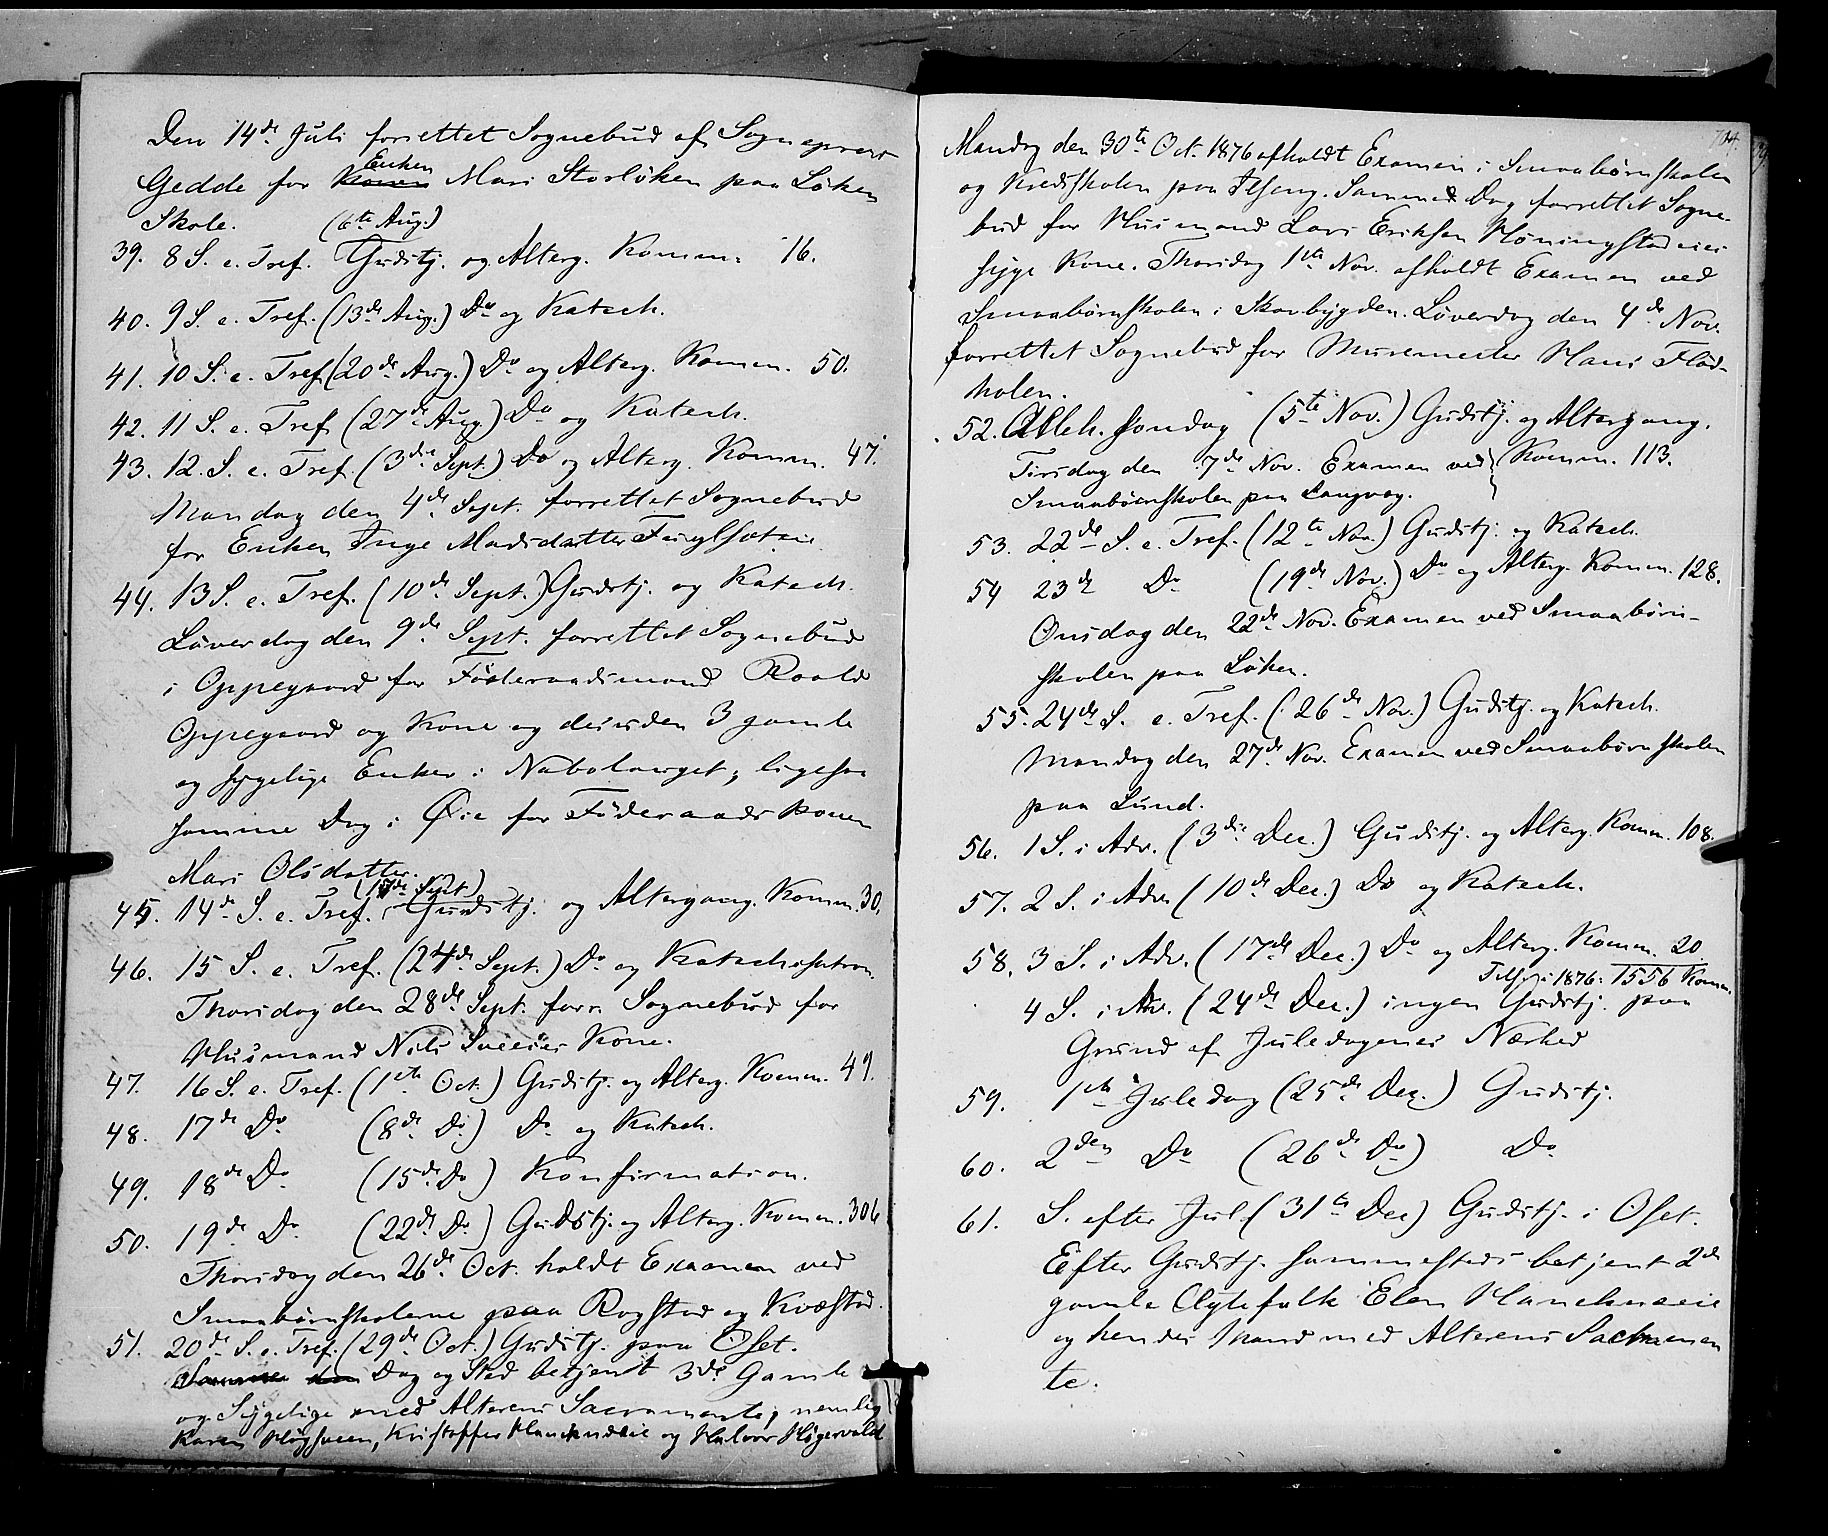 Den 14de Juli forrettet Sognebud af Sogneprest
Gedde for Konen Enken Mari Storløken paa Løken
Skole.
(6te Aug.)
39. 8 S. e. Tref. Gudstj. og Alterg. Komm. 16.
40. 9 S. e. Tref. (13de Aug.) Do og Katech.
41. 10 S. e. Tref. (20de Aug.) Do og Alterg. Komm. 50.
42. 11 S. e. Tref. (27de Aug.) Do og Katech.
43. 12. S. e. Tref. (3die Sept.) Do og Alterg. Komm. 47.
Mandag den 4de Sept. forrettet Sognebud
for Enken Inge Madsdatter
44. 13 S. e. Tref. (10de Sept.) Gudstj. og Katech.
Løverdag den 9de Sept. forrettet Sognebud
i Oppegaard for Föderaadsmand Roald
Oppegaard og Kone og desuden 3 gamle
og sygelige Enker i Nabolauget, ligesaa
samme Dag i Øie for Föderaadskonen
Mari Olsdatter.
(17de Sept)
45. 14de S. e. Tref. Gudstj. og Altergang. Komm. 30.
46. 15 S. e. Tref. (24de Sept.) Do og Katechisation.
Thorsdag den 28de Sept. forr. Sognebud for
Husmand Nils Sveeies Kone.
47. 16 S. e. Tref. (1ste Oct.) Gudstj. og Alterg. Komm. 49.
48. 17de Do (8de Do) Do og Katech.
49. 18de Do (15de Do) Konfirmation.
50. 19de Do (22de Do) Gudstj. og Alterg. Komm. 306
Thorsdag den 26de Oct. holdt Examen ved
Smaabørnskolerne paa Rogstad og Kvæstad.
51. 20de S. e. Tref. (29de Oct.) Gudstj. paa Oset.
Samme den Dag og Sted betjent 3de Gamle
og Sygelige med Alterens Sacramente, nemlig
Karen Høgsveen, Kristoffer og Halvor
Mandag den 30te Oct. 1876 afholdt Examen i Smaabørnskolen
og Kredsskolen paa Ilseng. Samme Dag forrettet Sogne-
bud for Husmand Lars Eriksen Høningstadeies
syge Kone. Thorsdag 1ste Nov. afholdt Examen ved
Smaabørnskolen i Skonbygden. Løverdag den 4de Nov.
forrettet Sognebud for Muremester Hans Flad-
holen.
52. Alleh. Søndag (5te Nov.) Gudstj. og Altergang.
Tirsdag den 7de Nov. Examen ved Komm. 113.
Smaabørnskolen paa Langvog.
53. 22de S. e. Tref. (12te Nov.) Gudstj. og Katech.
54 23de Do (19de Nov.) Do og Alterg. Komm. 128.
Onsdag den 22de Nov. Examen ved Smaabørn-
skolen paa Løken.
55. 24de S. e. Tref. (26de Nov.) Gudstj. og Katech.
Mandag den 27de Nov. Examen ved Smaabørnskolen
paa Lund.
56. 1 S. i Adv. (3die Dec.) Gudstj. og Alterg. Komm. 108.
57. 2 S. i Adv. (10de Dec.) Do og Katech.
58. 3 S. i Adv. (17de Dec.) Do og Alterg. Komm. 20
Tils. i 1876: 1556 Komm.
4 S. i Adv. (24de Dec.) ingen Gudstj. paa
Grund af Juledagenes Nærhed
59. 1ste Juledag (25de Dec.) Gudstj.
60. 2den Do (26de Do) Do
61. S. efter Jul (31te Dec) Gudstj. i Oset.
Efter Gudstj. sammesteds betjent 2de
gamle Elen
og hendes Mand med Alterens Sacramen
te.